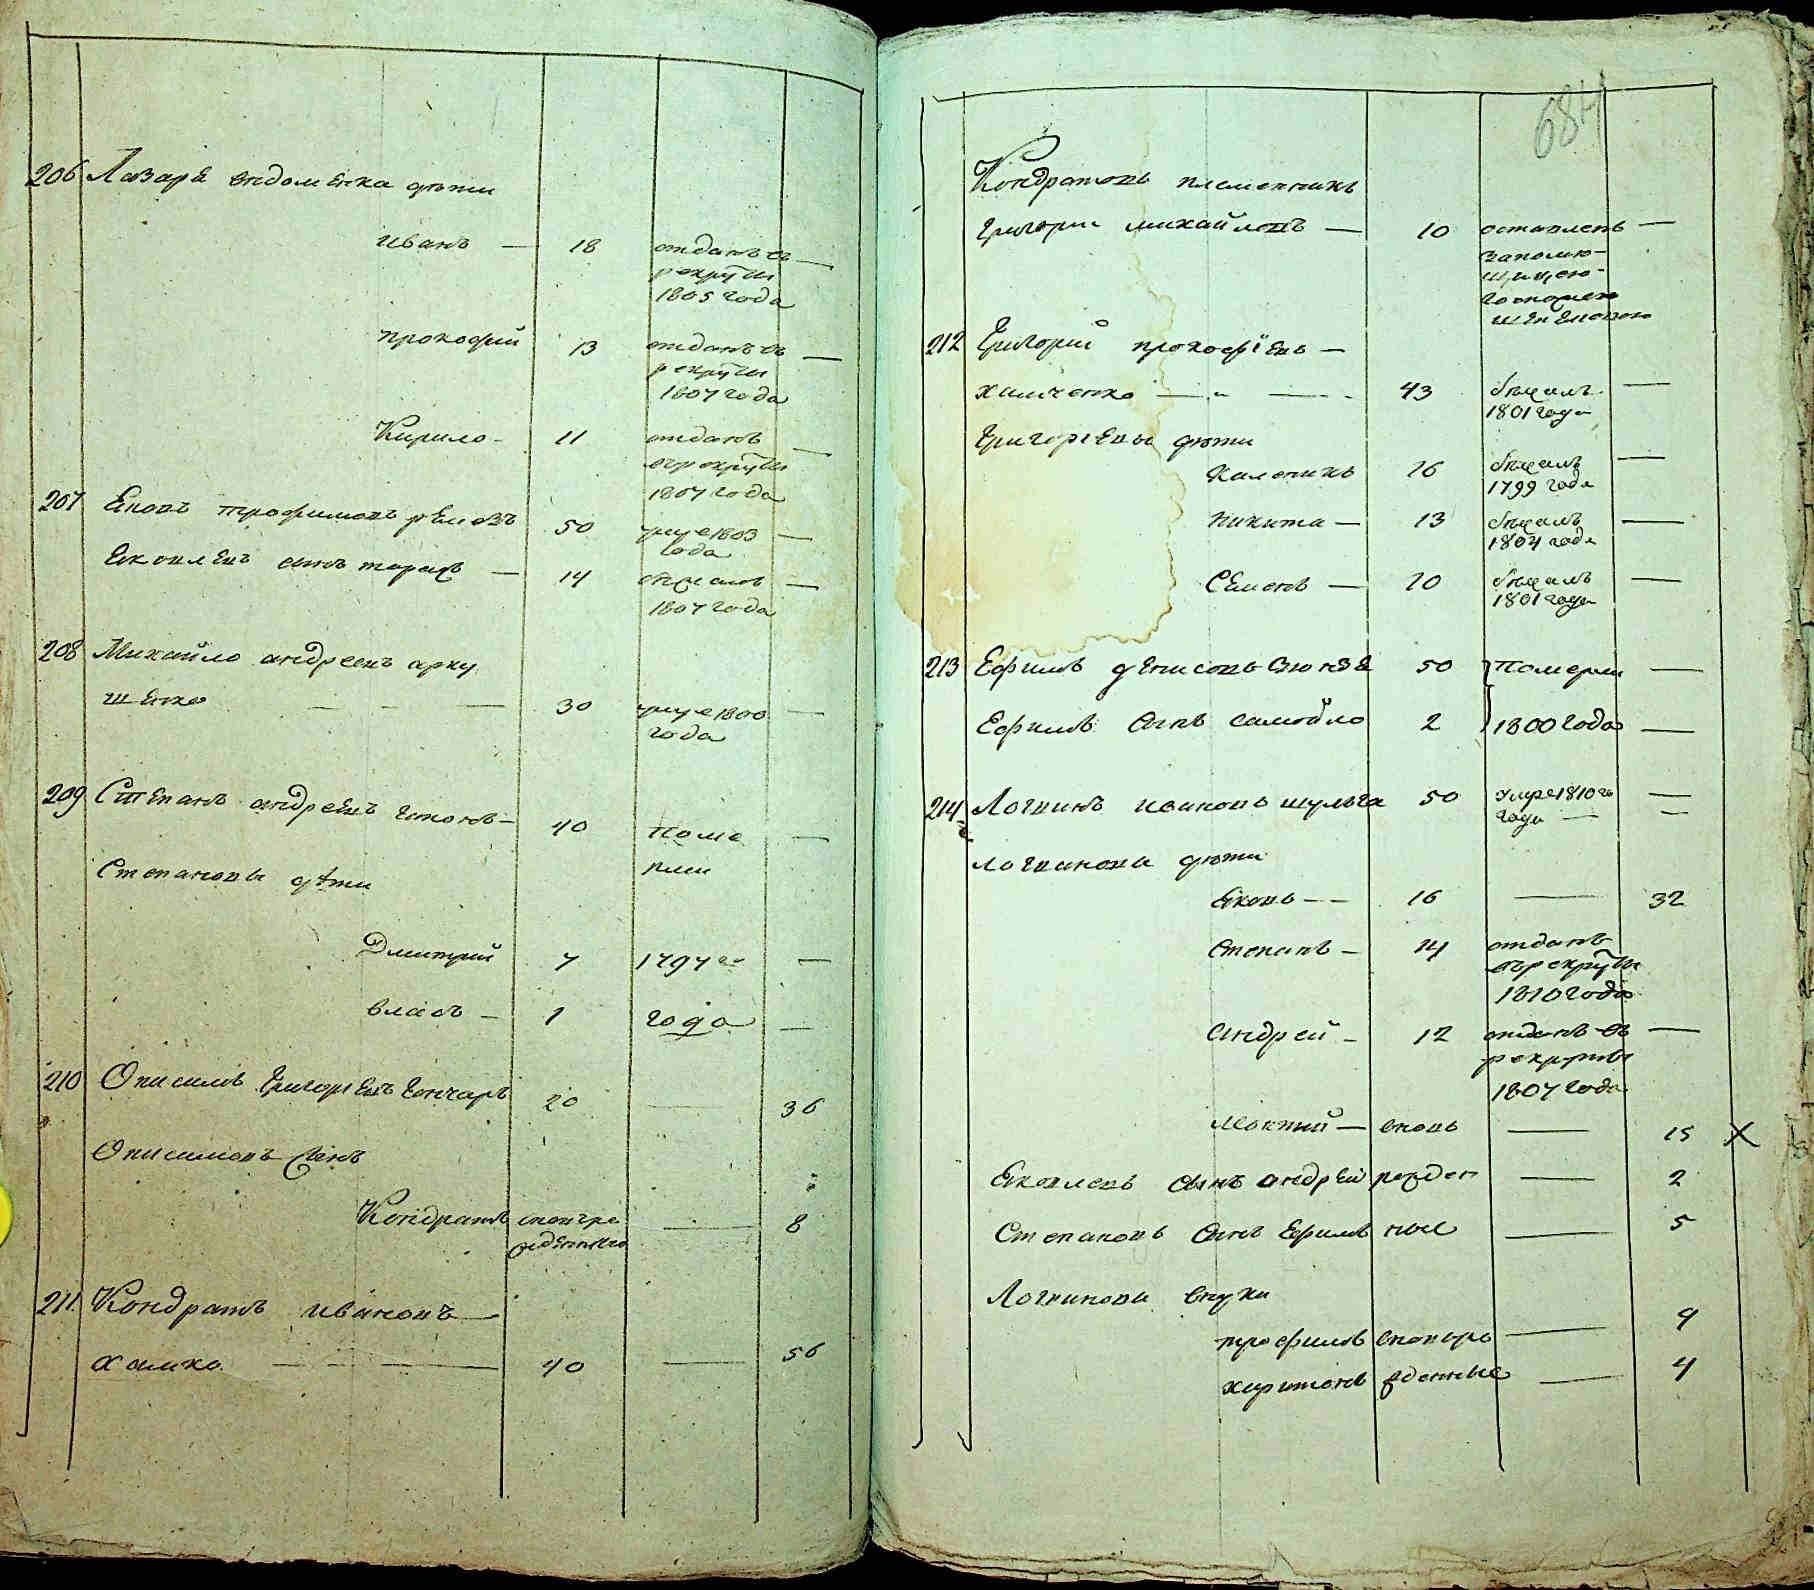 206 Лазаря евдоменка дѣти
Иванъ — 18 отданъ въ —
рекруты
1805 года
Прокофий 13 отданъ въ —
рекруты
1807 года
Кирило - 11 отданъ —
въ рекруты
1807 года
207 Яковъ трофимовъ 50 умре 1803 —
года
Яковлевъ сынъ тарасъ — 14 —
1807 года
208 Михайло андреевъ ярку
шенко — — — 30 умре 1800 —
года
209 Степанъ андреевъ — 40 поме —
Степановы дѣти рли
Дмитрий 7 1797 го —
власъ — 1 года —
210 Онисимъ Григорьевъ Гончаръ 20 — 36
Онисимовъ сынъ
Кондратъ вновь ро — 8
жденный
211 Кондратъ ивановъ —
Химко — — — 40 — 56
684
Кондратовъ племянникъ
Григорий михайловъ — 10 оставленъ —
за поме-
щицею
212 Григорий прокофiевъ —
химченко — — 43 бѣжалъ —
1801 года
Григорьевы дѣти
Каленикъ 16 бѣжалъ —
1799 года
Никита — 13 бѣжалъ —
1804 года
Семенъ — 10 бѣжалъ —
1801 года
213 Ефимъ денисовъ 50 померли —
Ефимовъ сынъ самойло 2 1800 года —
214 Логвинъ ивановъ шульга 50 умре 1810 го —
года —
Логвиновы дѣти
Яковъ — — 16 — 32
Степанъ — 14 отданъ
въ рекруты
1810 года
Андрей — 12 отданъ въ —
рекруты
1807 года
мокпий — вновь — 15 X
Яковлевъ сынъ андрей рожден — 2
Степановъ сынъ Ефимъ ные — 5
Логвиновы внуки
трофимъ вновь ро — 9
харитонъ жденные — 4